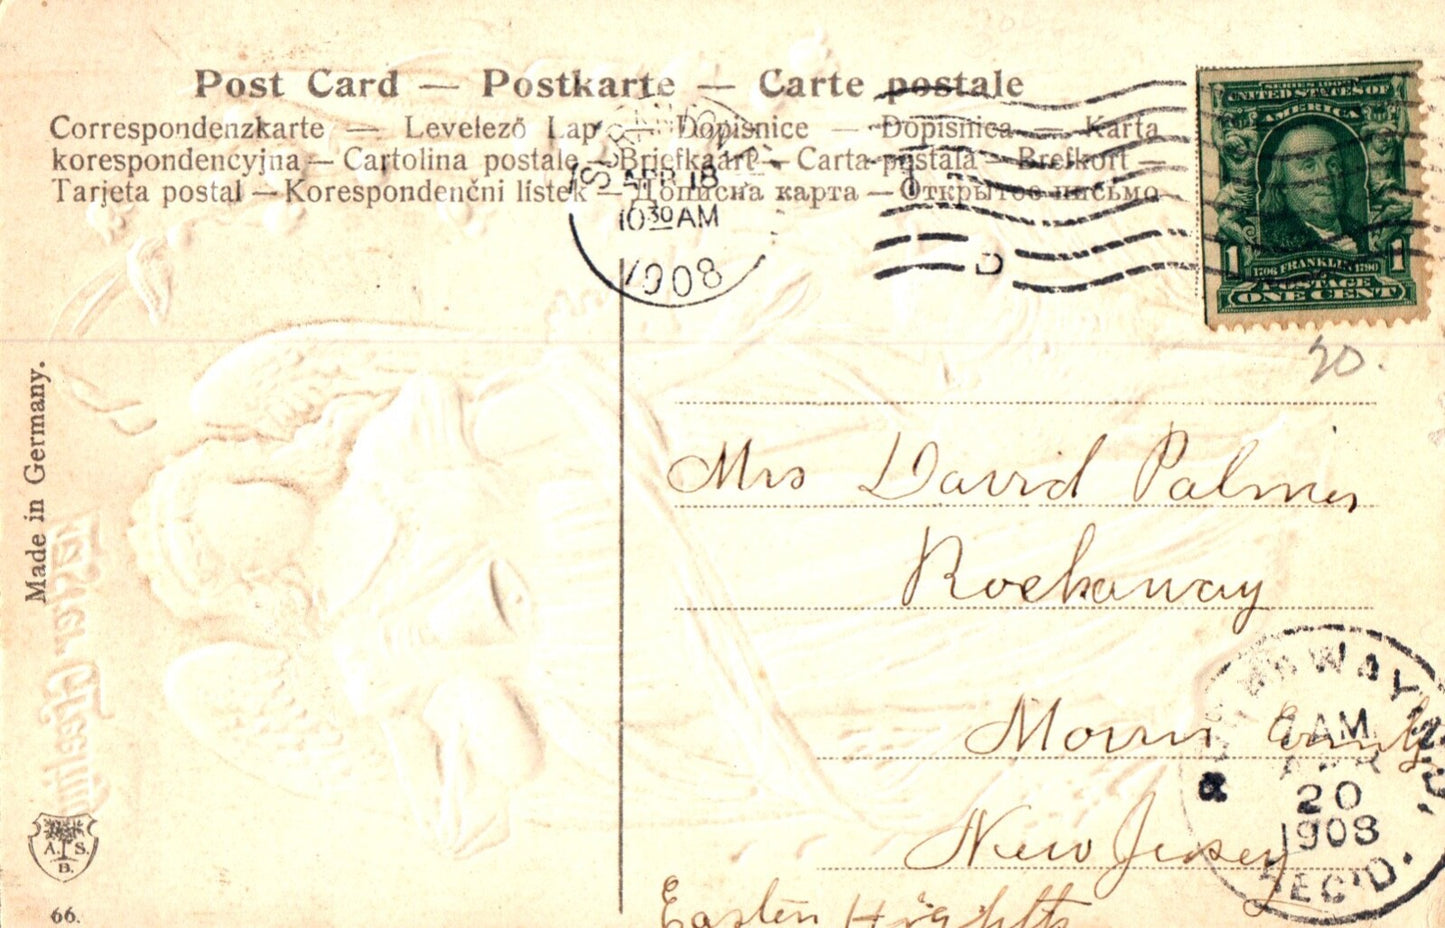 Post Card — Postkarte — Carte postale
Correspondenzkarte — Levelező Lap — Dopisnice — Dopisnica — Karta
korespondencyjna — Cartolina postale — Briefkaart — Carta postala — Brefkort —
Tarjeta postal — Korespondenčni listek — Дописна карта — Открытое письмо
APR 18
10 30 AM
1908
D
SERIES 1902
UNITED STATES OF
AMERICA
1 1
1706 FRANKLIN 1790
POSTAGE
ONE CENT
20.
Made in Germany.
Easter Greeting
Mrs David Palmer
Rockaway
Morris County
New Jersey
Easten Heights
ROCKAWAY, N.J.
AM
APR
20
1908
REC'D.
A. S.
B.
66.